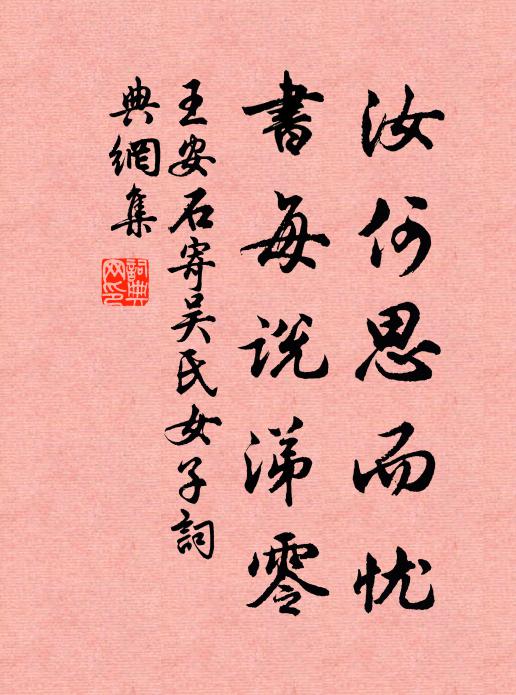 汝何思而忧
書每説涕零
王安石寄吴氏女子詞
典網集
詞典
网印